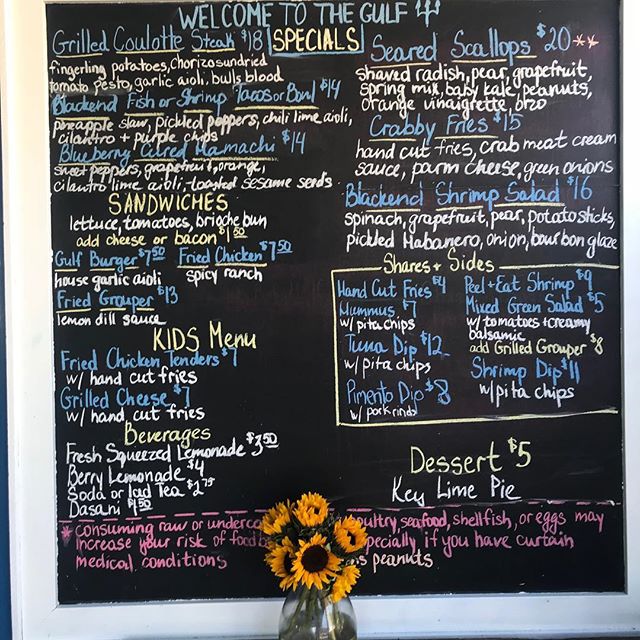 WELCOME TO THE GULF
SPECIALS
Grilled Coulotte Steak $18
fingerling potatoes, chorizo sundried
tomato pesto, garlic aioli, bulls blood
Blackend Fish or Shrimp Tacos or Bowl $14
pineapple slaw, pickled peppers, chili lime aioli,
cilantro + purple chips
Blueberry Cured Hamachi $14
sweet peppers, grapefruit, orange,
cilantro lime aioli, toasted sesame seeds
SANDWICHES
lettuce, tomatoes, brioche bun
add cheese or bacon $1.50
Gulf Burger $7.50
house garlic aioli
Fried Chicken $7.50
spicy ranch
Fried Grouper $13
lemon dill sauce
KIDS Menu
Fried Chicken Tenders $7
w/ hand cut fries
Grilled Cheese $7
w/ hand cut fries
Beverages
Fresh Squeezed Lemonade $3.50
Berry Lemonade $4
Soda or Iced Tea $2.75
Dasani $1.50
Seared Scallops $20**
shaved radish, pear, grapefruit,
spring mix, baby kale, peanuts,
orange vinaigrette, orzo
Crabby Fries $15
hand cut fries, crab meat cream
sauce, parm cheese, green onions
Blackend Shrimp Salad $16
spinach, grapefruit, pear, potato sticks,
pickled Habanero, onion, bourbon glaze
Shares + Sides
Hand Cut Fries $4
Hummus $7
w/ pita chips
Tuna Dip $12
w/ pita chips
Pimento Dip $8
w/ pork rinds
Peel + Eat Shrimp $9
Mixed Green Salad $5
w/ tomatoes + creamy
balsamic
add Grilled Grouper $8
Shrimp Dip $11
w/ pita chips
Dessert $5
Key Lime Pie
* consuming raw or seafood, shellfish, or eggs may
increase your risk of if you have curtain
medical conditions peanuts